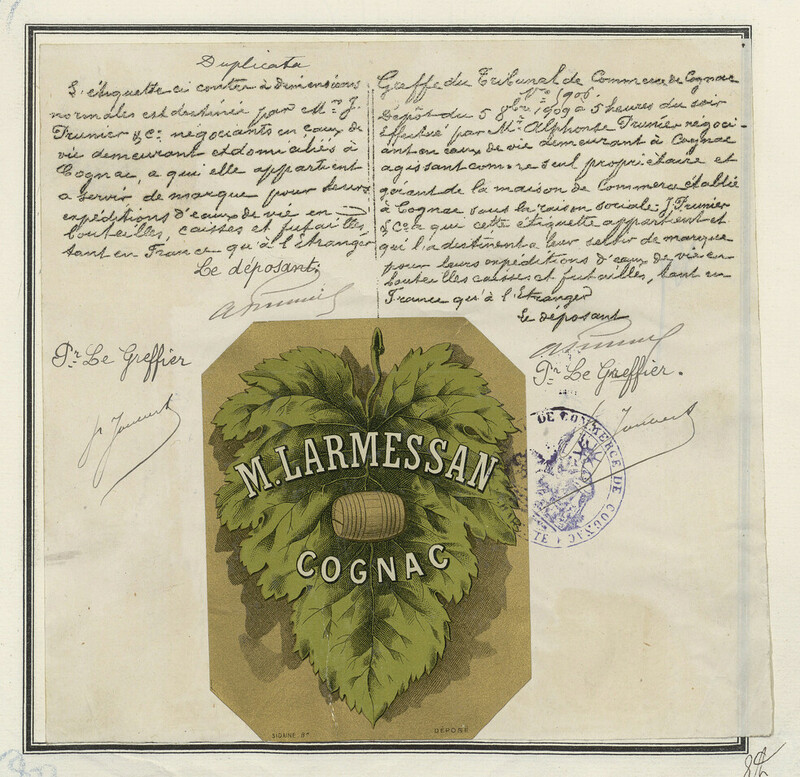 Duplicata
L'étiquette ci contre à dimensions
normales est destinée par Mrs J.
Prunier & Cie négociants en eaux de
vie demeurant et domiciliés à
Cognac, a qui elle appartient
a servir de marque pour leurs
expéditions d'eaux de vie en
bouteilles, caisses et futailles,
tant en France qu'à l'étranger
Le déposant.
APrunier
Pr Le Greffier
Greffe du Tribunal de Commerce de Cognac
Dépôt du 5 à 5 heures du soir
Effectué par Mr Alphonse Prunier négoci-
ant en eaux de vie demeurant à Cognac
agissant comme seul propriétaire et
gérant de la maison de Commerce établie
à Cognac sous la raison sociale: J Prunier
& Cie a qui cette étiquette appartient et
qui l'a destinent a leur servir de marque
pour leurs expéditions d'eaux de vie en
bouteilles caisses et futailles, tant en
France qu'à l'Etranger
Le déposant
APrunier
Pr Le Greffier.
DE COMMERCE DE COGNAC
M. LARMESSAN
COGNAC
DÉPOSÉ